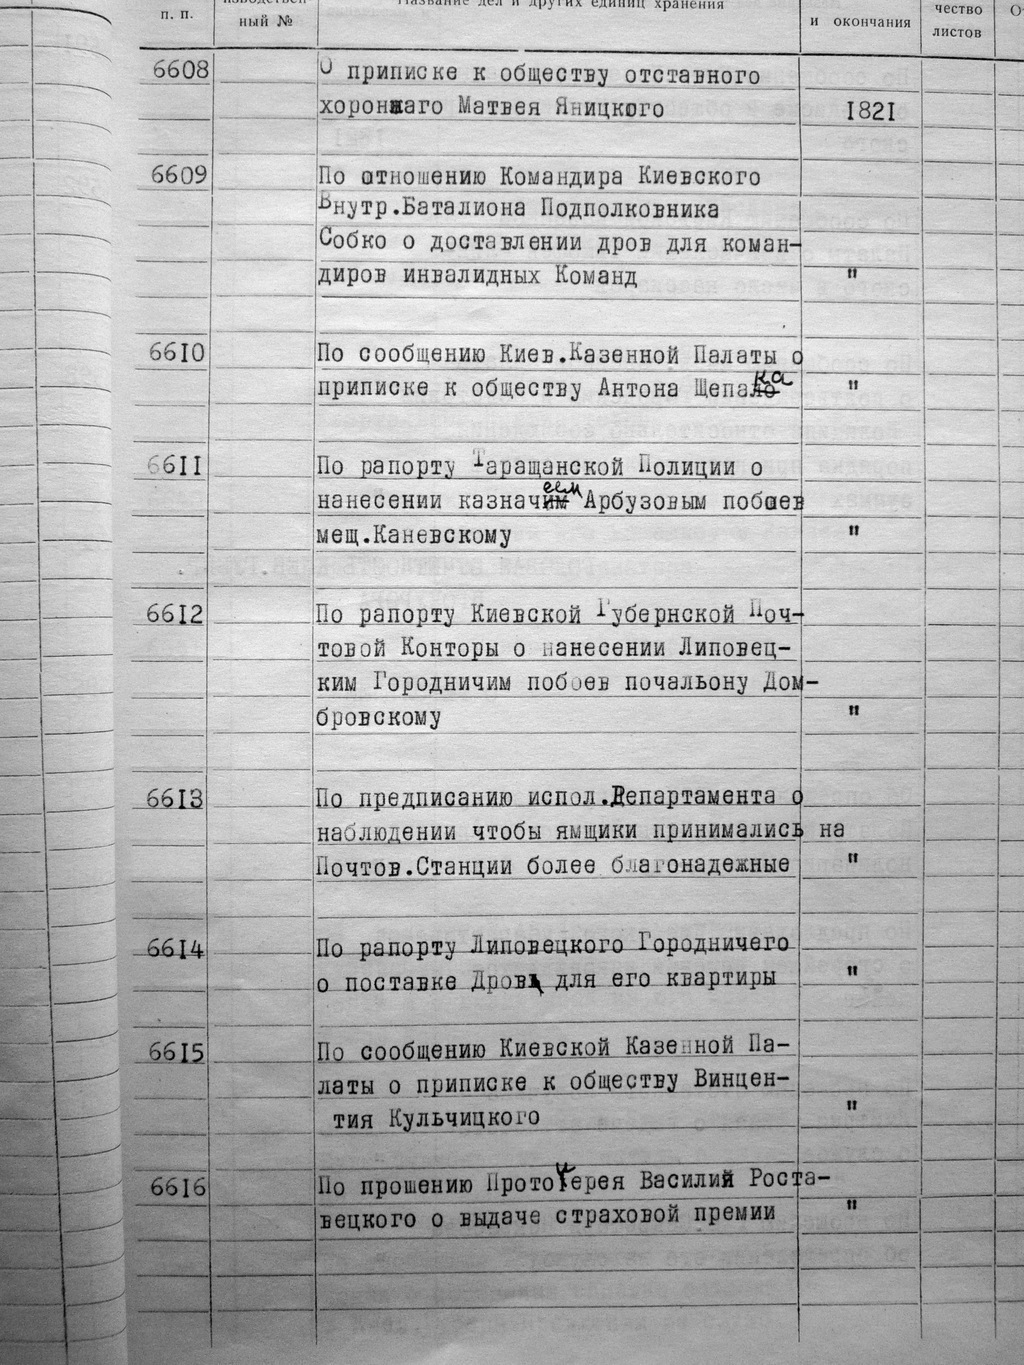 п. п.
ный №
Название дел и других единиц хранения
и окончания
чество
листов
6608
О приписке к обществу отставного
хоронжаго Матвея Яницкого
1821
6609
По отношению Командира Киевского
Внутр.Баталиона Подполковника
Собко о доставлении дров для коман-
диров инвалидных Команд
"
6610
По сообщению Киев.Казенной Палаты о
приписке к обществу Антона Щепалока
"
6611
По рапорту Таращанской Полиции о
нанесении казначеем Арбузовым побоев
мещ.Каневскому
"
6612
По рапорту Киевской Губернской Поч-
товой Конторы о нанесении Липовец-
ким Городничим побоев почальону Дом-
бровскому
"
6613
По предписанию испол.Департамента о
наблюдении чтобы ямщики принимались на
Почтов.Станции более благонадежные
"
6614
По рапорту Липовецкого Городничего
о поставке Дров для его квартиры
"
6615
По сообщению Киевской Казенной Па-
латы о приписке к обществу Винцен-
тия Кульчицкого
"
6616
По прошению Протоиерея Василия Роста-
вецкого о выдаче страховой премии
"